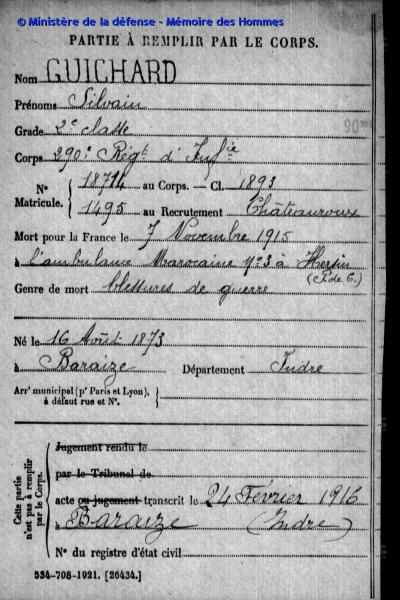 © Ministère de la défense - Mémoire des Hommes
PARTIE À REMPLIR PAR LE CORPS.
Nom GUICHARD
Prénoms Silvain
Grade 2e classe
Corps 290e Régt d'Infie
N° Matricule. { 18714 au Corps. — Cl. 1893
1495 au Recrutement Châteauroux
Mort pour la France le 7 Novembre 1915
à l'ambulance Marocaine no 3 à Hersin
(P. de C.)
Genre de mort blessures de guerre
Né le 16 Août 1873
à Baraize Département Indre
Arrt municipal (pr Paris et Lyon),
à défaut rue et N°.
Cette partie n'est pas à remplir par le Corps.
Jugement rendu le
par le Tribunal de
acte ou jugement transcrit le 24 Février 1916
à Baraize (Indre)
N° du registre d'état civil
534-708-1921. [26434.]